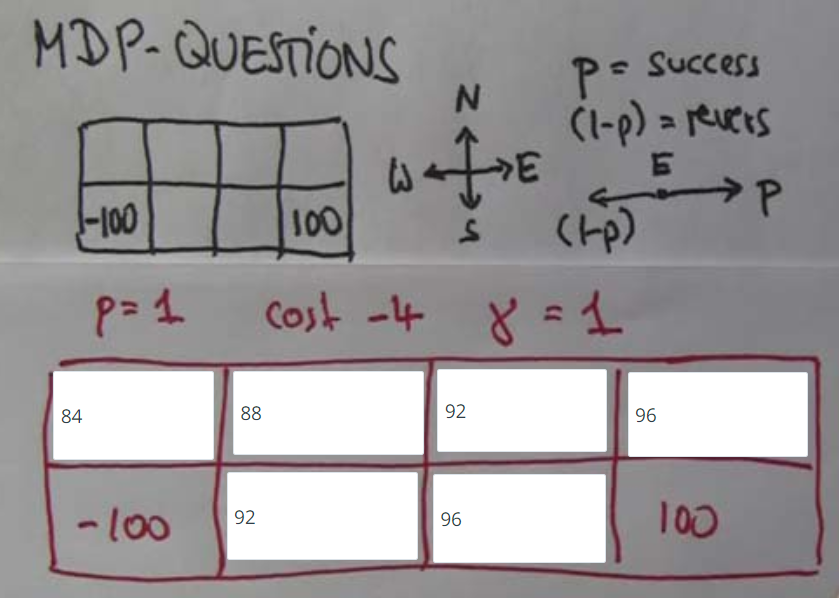 MDP-QUESTIONS
N
W E
S
p = success
(1-p) = revers
E
p
(1-p)
-100 100
p = 1 cost -4 γ = 1
84 88 92 96
-100 92 96 100